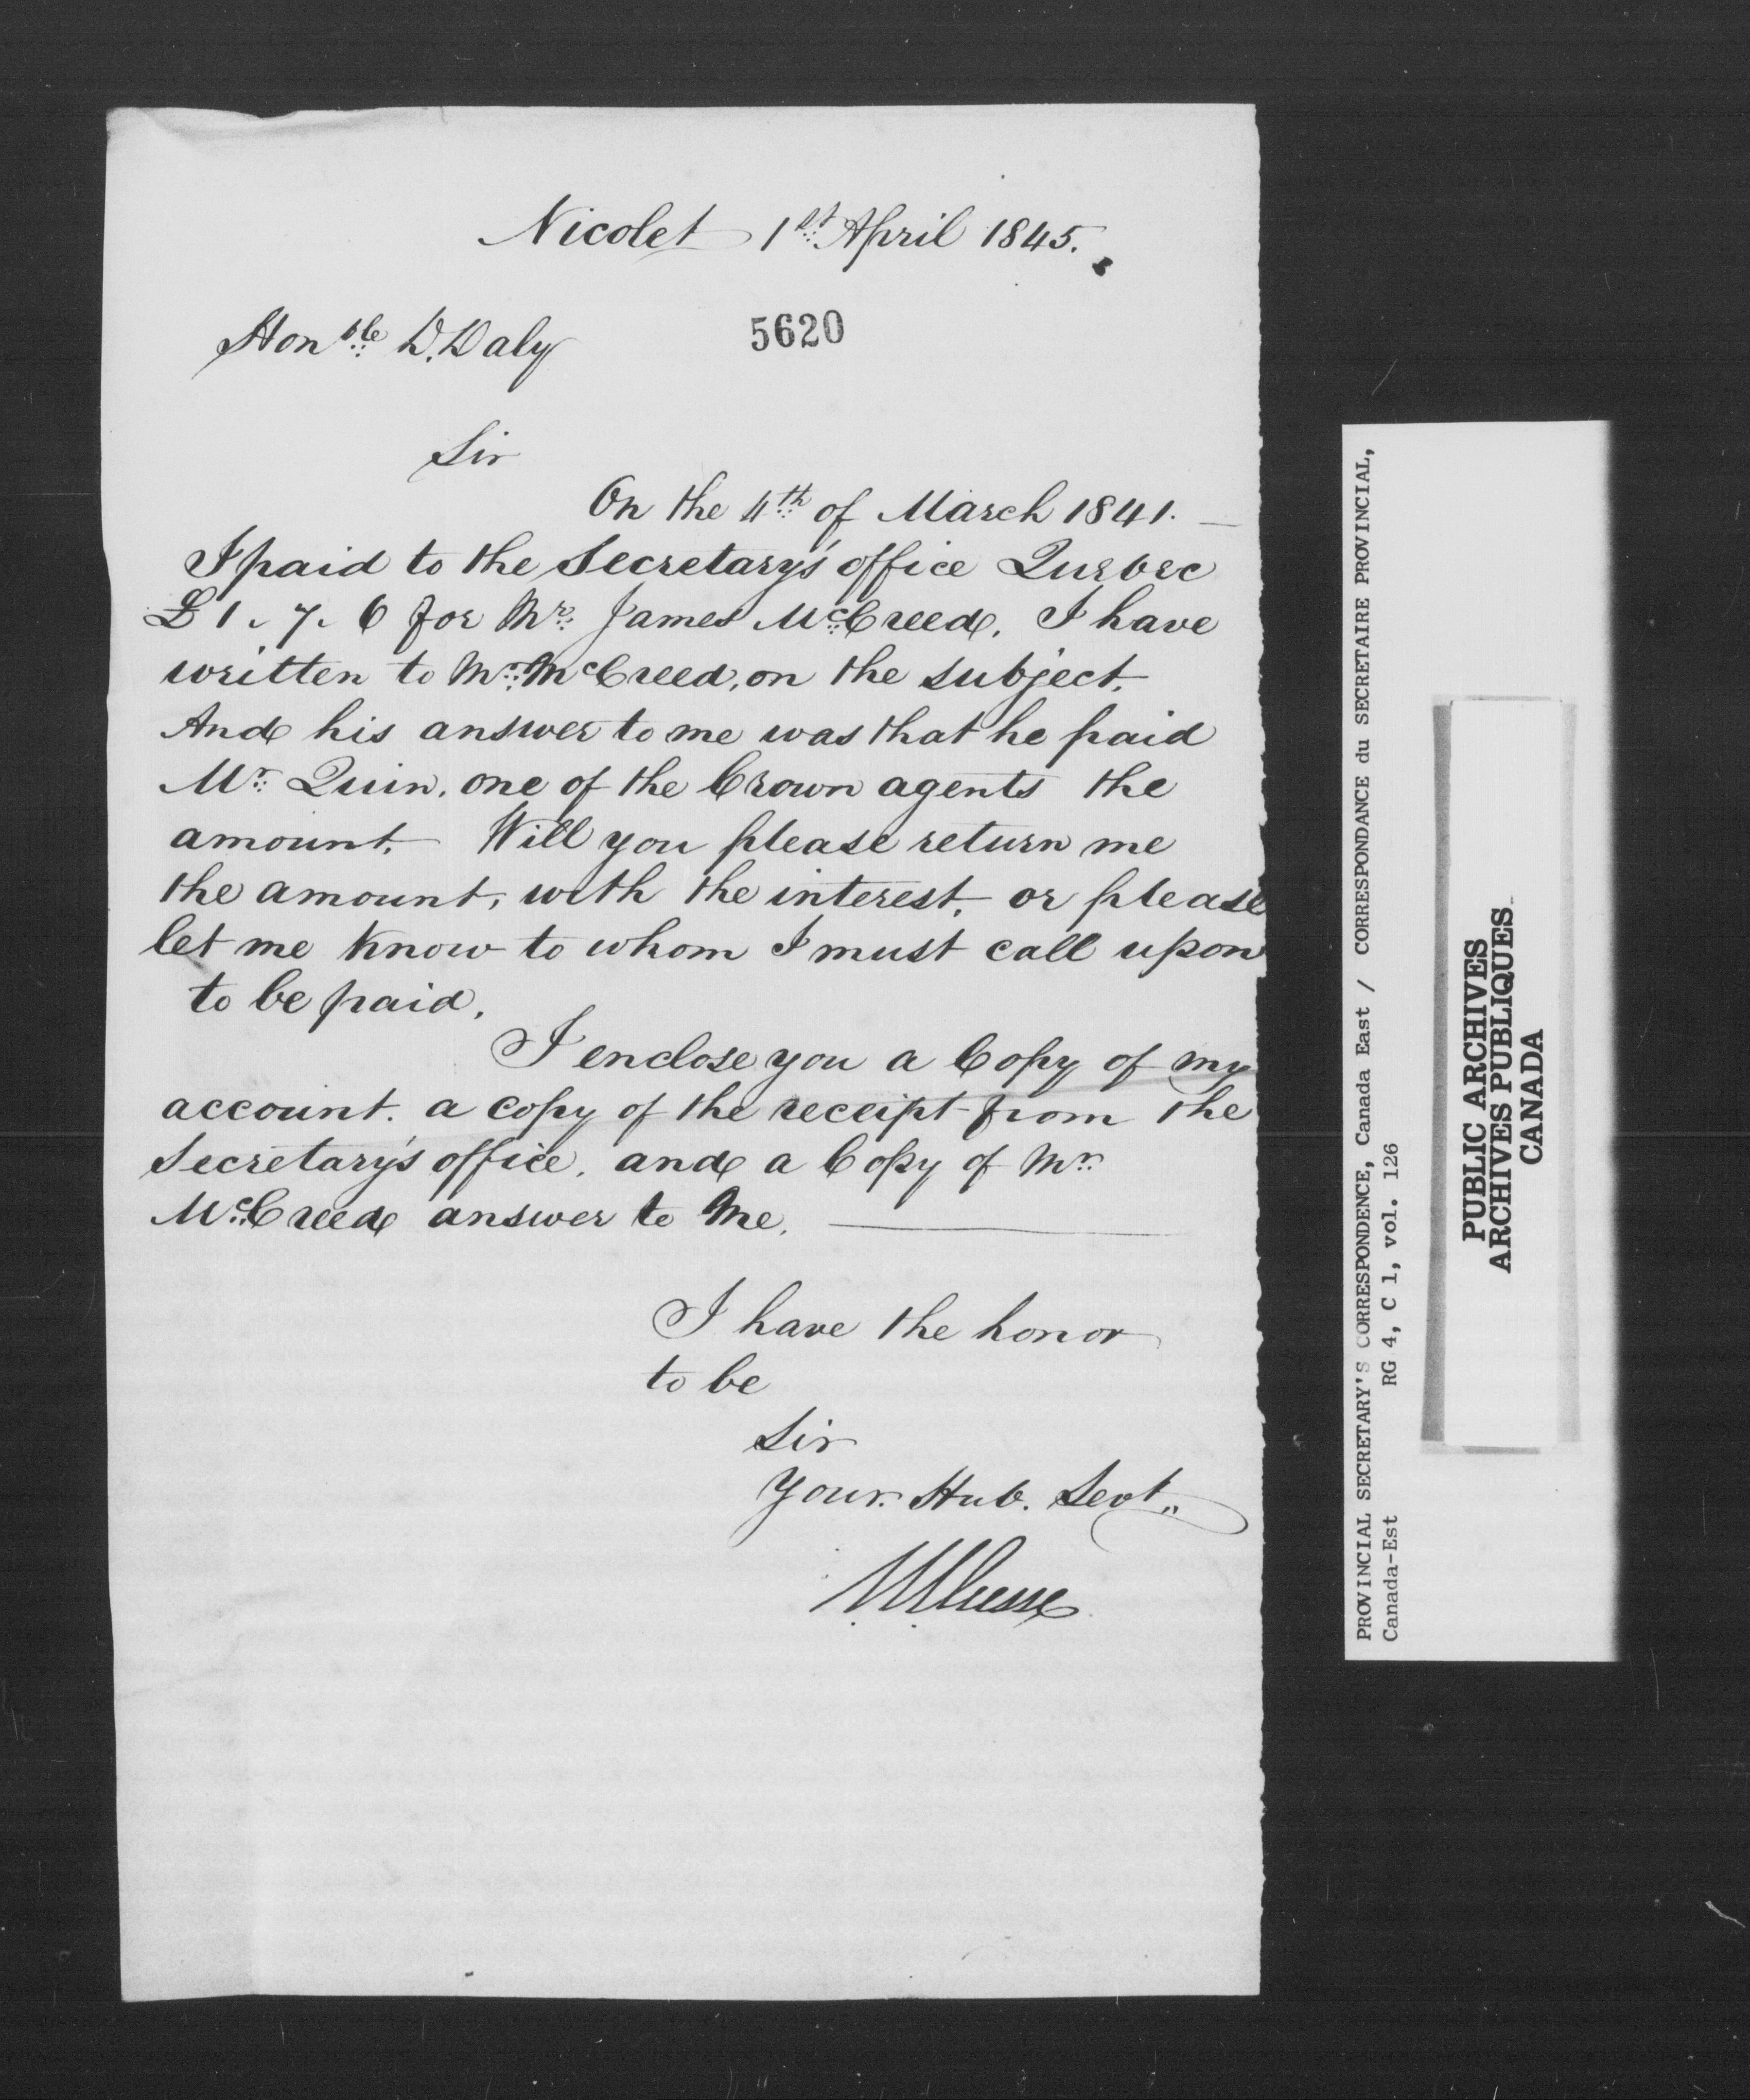 Nicolet 1st April 1845.
Honble D. Daly
5620
Sir
On the 4th of March 1841. —
I paid to the Secretary's office Quebec
£ 1. 7. 6 for Mr. James McCreed. I have
written to Mr. McCreed, on the subject.
And his answer to me was that he paid
Mr. Quin, one of the Crown agents the
amount. Will you please return me
the amount, with the interest, or please
let me know to whom I must call upon
to be paid.
I enclose you a Copy of my
account. a copy of the receipt from the
Secretary's office, and a Copy of Mr.
McCreed answer to Me. —
I have the honor
to be
Sir
Your. Hub. Sevt.
PROVINCIAL SECRETARY'S CORRESPONDENCE, Canada East / CORRESPONDANCE du SECRETAIRE PROVINCIAL,
Canada-Est RG 4, C 1, vol. 126
PUBLIC ARCHIVES
ARCHIVES PUBLIQUES
CANADA